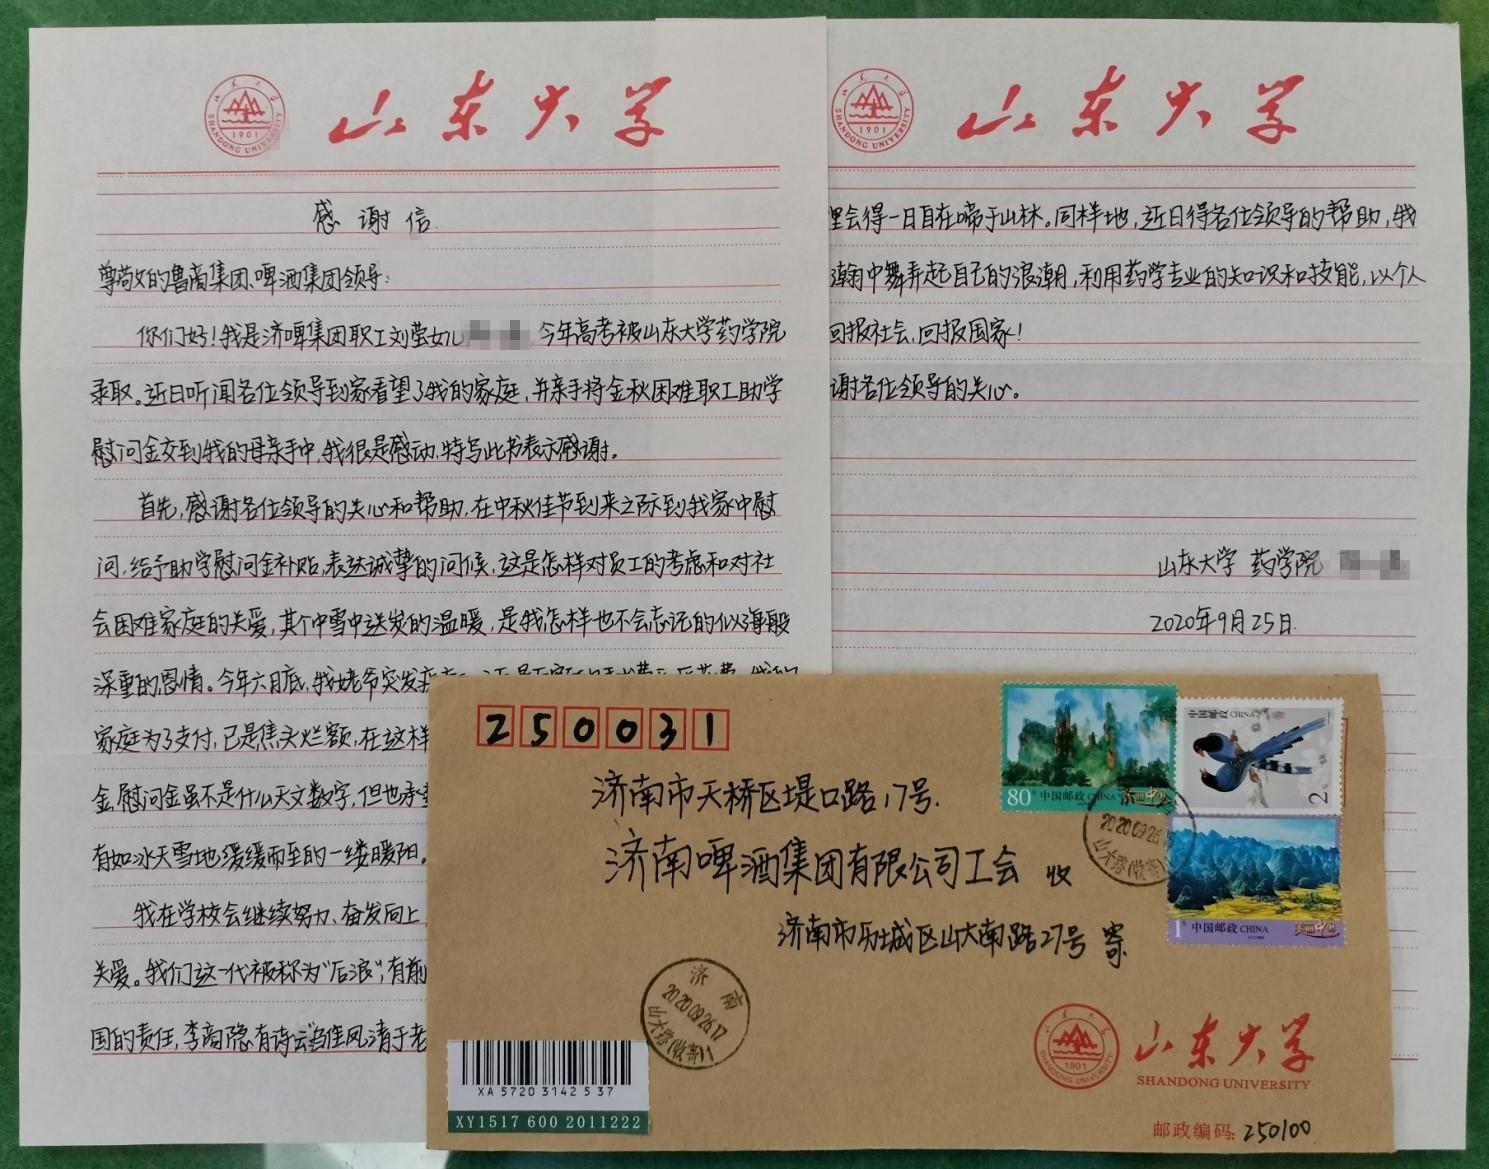 山东大学
SHANDONG UNIVERSITY
1901
感谢信
尊敬的鲁商集团、啤酒集团领导:
你们好!我是济啤集团职工刘莹女儿 今年高考被山东大学药学院
录取。近日听闻各位领导到家看望了我的家庭,并亲手将金秋困难职工助学
慰问金交到我的母亲手中,我很是感动,特写此书表示感谢。
首先,感谢各位领导的关心和帮助,在中秋佳节到来之际到我家中慰
问,给予助学慰问金补贴,表达诚挚的问候,这是怎样对员工的考虑和对社
会困难家庭的关爱,其个中雪中送炭的温暖,是我怎样也不会忘记的似海般
深重的恩情。今年六月底,我姥爷突发疾
家庭为了支付,已是焦头烂额,在这样
金,慰问金虽不是什么天文数字,但也承
有如冰天雪地缓缓而至的一缕暖阳。
我在学校会继续努力、奋发向上,
关爱。我们这一代被称为“后浪”,有前
国的责任,李商隐有诗云“雏凤清于老
山东大学
SHANDONG UNIVERSITY
1901
会得一日自在啼于山林。同样地,近日得各位领导的帮助,我
瀚中舞弄起自己的浪潮,利用药学专业的知识和技能,以个人
回报社会,回报国家!
谢各位领导的关心。
山东大学 药学院
2020年9月25日.
250031
济南市天桥区堤口路17号.
济南啤酒集团有限公司工会 收
济南市历城区山大南路27号 寄
80 中国邮政 CHINA 美丽中国
中国邮政 CHINA
2元
1元 中国邮政 CHINA 美丽中国
2020.09.26.17
山大路(收寄)
济南
2020.09.26.17
山大路(收寄)1
XA 5720 3142 5 37
XY1517 600 2011222
1901
山东大学
SHANDONG UNIVERSITY
邮政编码: 250100